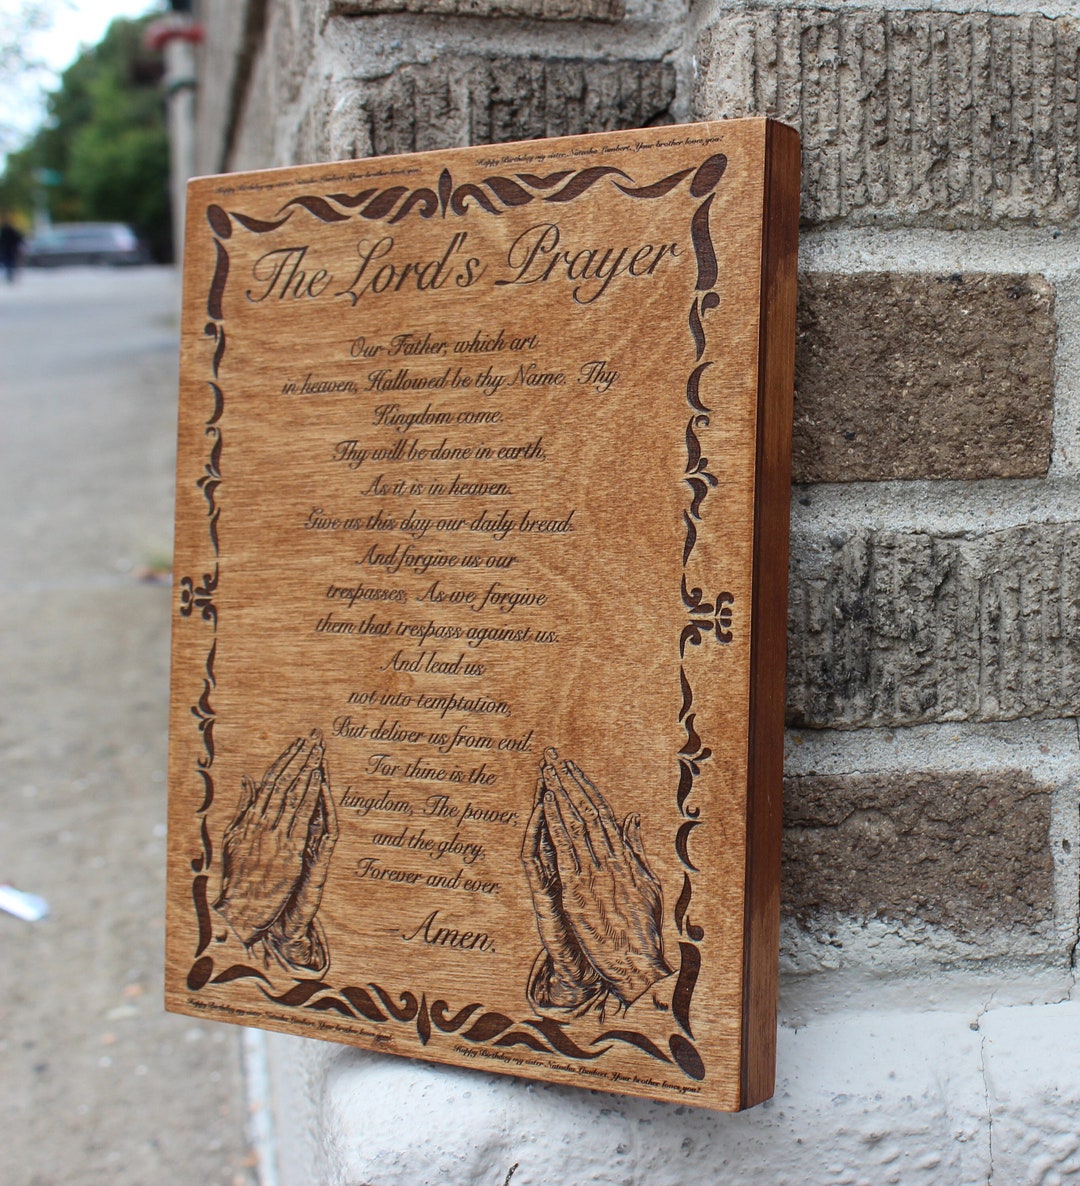 Happy Birthday my sister Natasha Limbert. Your brother loves you!
Happy Birthday my sister Natasha Limbert. Your brother loves you!
The Lord's Prayer
Our Father, which art
in heaven, Hallowed be thy Name. Thy
Kingdom come.
Thy will be done in earth,
As it is in heaven.
Give us this day our daily bread.
And forgive us our
trespasses, As we forgive
them that trespass against us.
And lead us
not into temptation,
But deliver us from evil.
For thine is the
kingdom, The power,
and the glory,
Forever and ever.
-Amen.
Happy Birthday my sister Natasha Limbert. Your brother loves you!
Happy Birthday my sister Natasha Limbert. Your brother loves you!